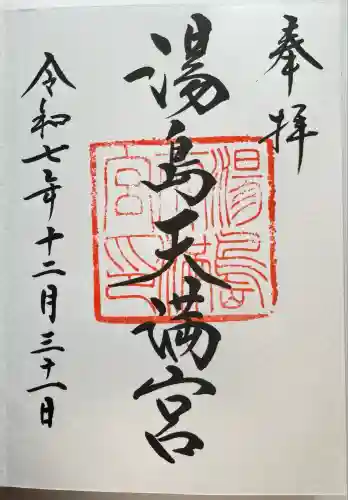 奉拝
湯島天満宮
令和七年十二月三十一日
湯島
天満
宮印